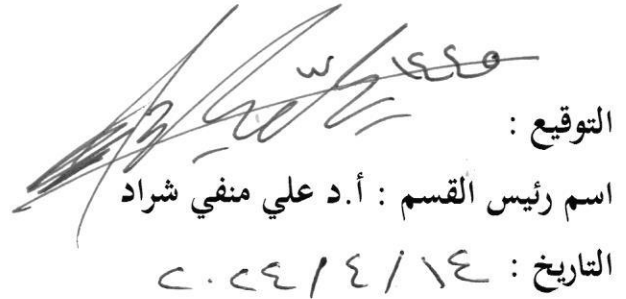 ١٤٤٥
التوقيع :
اسم رئيس القسم : أ.د علي منفي شراد
التاريخ : ١٤ / ٤ / ٢٠٢٤